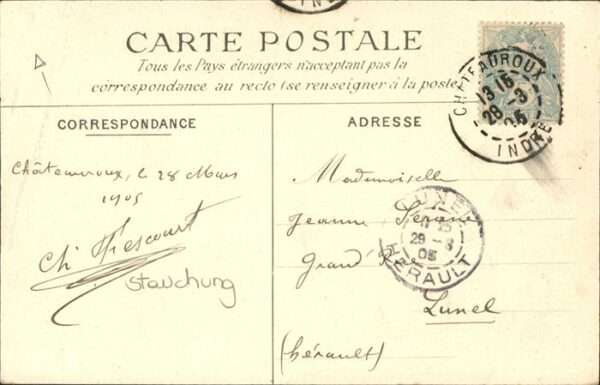 INDRE
CARTE POSTALE
Tous les Pays étrangers n'acceptent pas la
correspondance au recto (se renseigner à la poste)
CORRESPONDANCE
ADRESSE
CHATEAUROUX
13 15
28 -3
05
INDRE
Châteauroux, le 28 Mars
1905
Ch
Stauchung
Mademoiselle
Jeanne
Grand'
Lunel
(Hérault)
LUNEL
29 -3
05
HERAULT